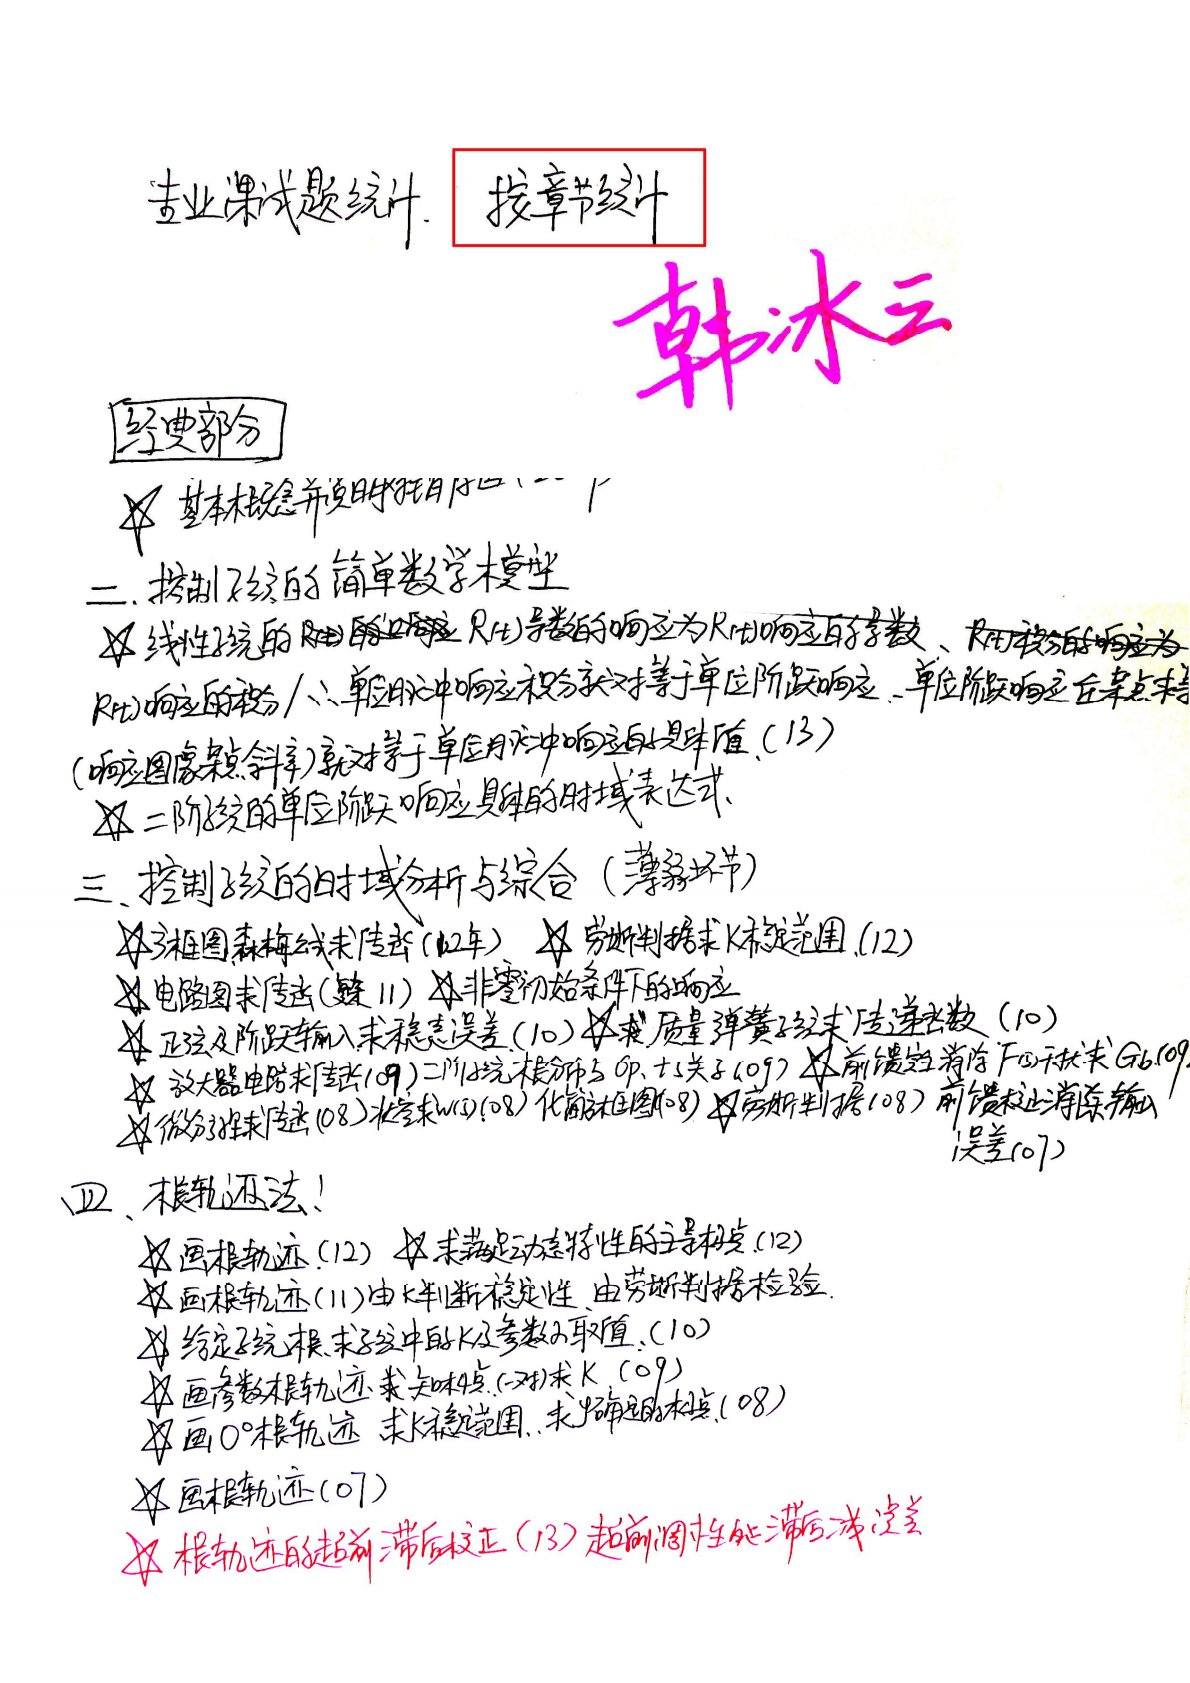 专业课试题统计. 按章节统计
韩冰云
经典部分
☆ 基本概念并说明
二、控制系统的简单数学模型
☆ 线性系统的 R(t)导数的响应为R(t)响应的导数、R(t)积分的响应为
R(t)响应的积分/∴单位脉冲响应积分就对等于单位阶跃响应、单位阶跃响应在某点求导
(响应图像某点斜率)就对等于单位脉冲响应的具体值.(13)
☆ 二阶系统的单位阶跃响应具体的时域表达式、
三、控制系统的时域分析与综合(薄弱环节)
☆方框图森梅线求传函(12年) ☆ 劳斯判据求K稳定范围.(12)
☆电路图求传函(11) ☆非零初始条件下的响应
☆ 正弦及阶跃输入求稳态误差.(10) ☆质量弹簧系统求传递函数(10)
☆ 放大器电路求传函(09)二阶系统根分布与σp、ts关系(09) ☆前馈校正消除F(t)干扰求Gb.(09)
☆微分方程求传函(08)状空求W(s)(08) 化简方框图(08) ☆劳斯判据(08) 前馈校正消除输出
误差(07)
四、根轨迹法!
☆画根轨迹.(12) ☆求满足动态特性的主导极点.(12)
☆画根轨迹(11)由K判断稳定性、由劳斯判据检验.
☆ 给定系统根.求系统中的K及参数a取值.(10)
☆画参数根轨迹.求.(一对)求K.(09)
☆画0°根轨迹 求K稳定范围、求确定的极点.(08)
☆ 画根轨迹(07)
☆ 根轨迹的超前滞后校正(13)超前调性能滞后减误差